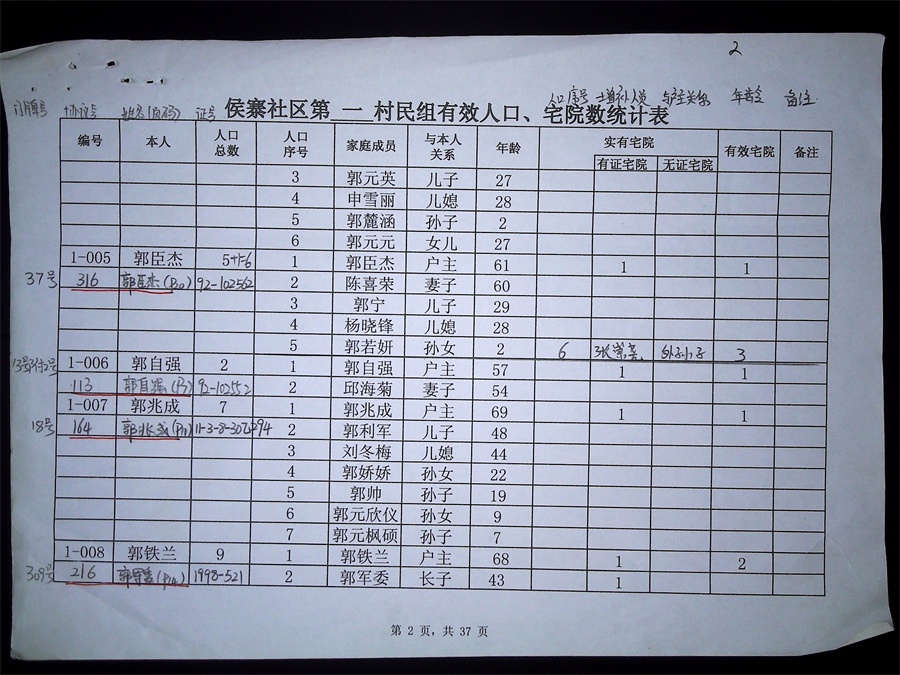 2
门牌号 协议号 姓名(页码) 证号 人口序号 土增补人员 与户主关系 年龄 备注
侯寨社区第 一 村民组有效人口、宅院数统计表
编号 本人 人口总数 人口序号 家庭成员 与本人关系 年龄 实有宅院 有效宅院 备注
有证宅院 无证宅院
3 郭元英 儿子 27
4 申雪丽 儿媳 28
5 郭麓涵 孙子 2
6 郭元元 女儿 27
1-005 郭臣杰 5+1=6 1 郭臣杰 户主 61 1 1
37号 316 郭臣杰(P10) 92-102562 2 陈喜荣 妻子 60
3 郭宁 儿子 29
4 杨晓锋 儿媳 28
5 郭若妍 孙女 2 6 张崇尧 外孙子 3
1-006 郭自强 2 1 郭自强 户主 57 1 1
13号附2号 113 郭自强(P7) 92-102552 2 邱海菊 妻子 54
1-007 郭兆成 7 1 郭兆成 户主 69 1 1
18号 164 郭兆成(P11) 11-3-8-302494 2 郭利军 儿子 48
3 刘冬梅 儿媳 44
4 郭娇娇 孙女 22
5 郭帅 孙子 19
6 郭元欣仪 孙女 9
7 郭元枫硕 孙子 7
1-008 郭铁兰 9 1 郭铁兰 户主 68 1 2
309号 216 郭军委(P14) 1998-521 2 郭军委 长子 43 1
第 2 页，共 37 页